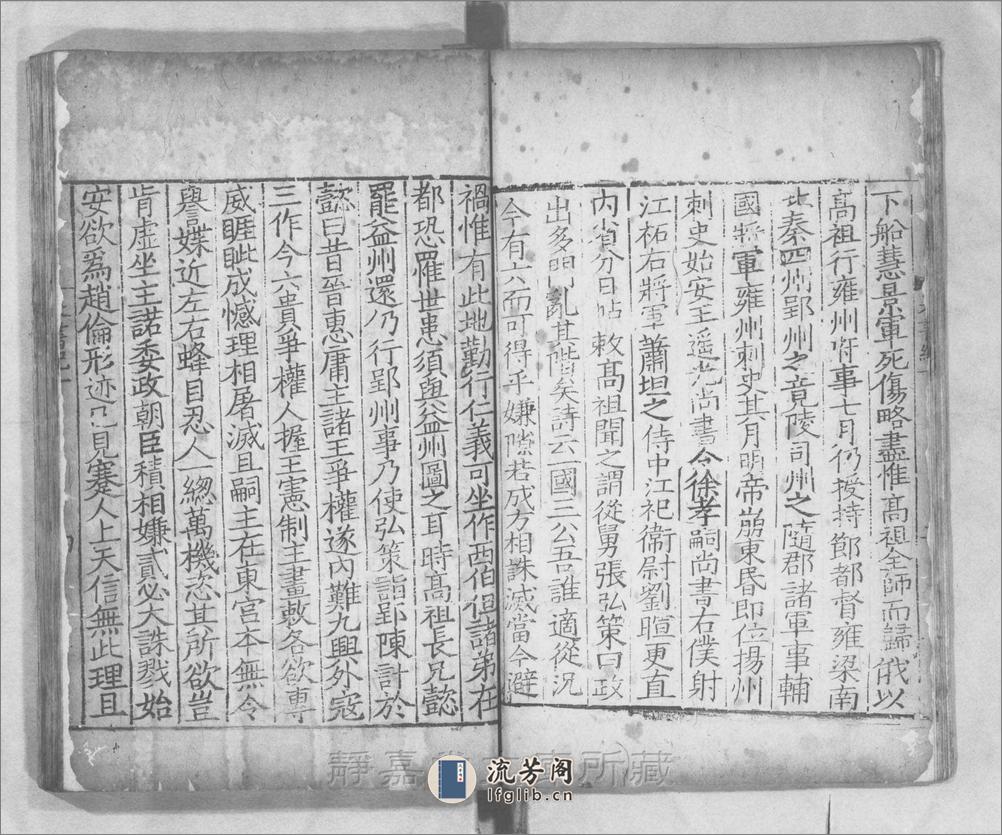 下船慧景軍死傷略盡惟髙祖全師而歸俄以
髙祖行雍州府事七月仍授持節都督雍梁南
北秦四州郢州之竟陵司州之隨郡諸軍事輔
國將軍雍州刺史其月明帝崩東昏即位揚州
刺史始安王遥光尚書令徐孝嗣尚書右僕射
江柘右將軍蕭坦之侍中江祀衞尉劉暄更直
内省分日帖敕髙祖聞之謂從舅張弘策曰政
出多門亂其階矣詩云一國三公吾誰適從况
今有六而可得乎嫌隙若成方相誅滅當今避
禍惟有此地勤行仁義可坐作西伯但諸弟在
都恐罹世患須與益州圖之耳時髙祖長兄懿
罷益州還仍行郢州事乃使弘策詣郢陳計於
懿曰昔晉惠庸主諸王爭權遂内難九興外宼
三作今六貴爭權人握王憲制主畫敕各欲專
威睚眦成憾理相屠滅且嗣主在東宫本無令
譽媟近左右蜂目忍人一總萬機恣其所欲豈
肯虚坐主諾委政朝臣積相嫌貳必大誅戮始
安欲為趙倫形迹已見蹇人上天信無此理且
靜嘉堂文庫所藏
流芳阁
lfglib.cn